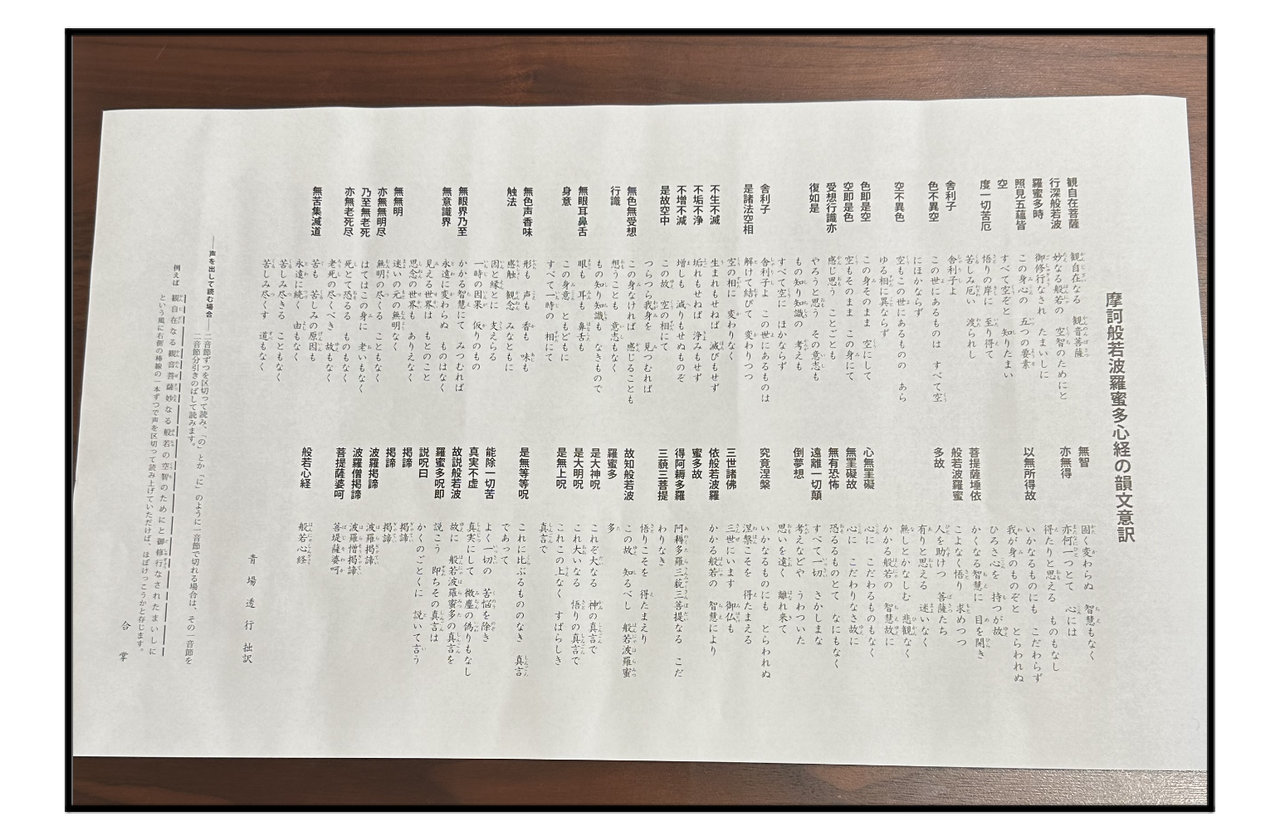 摩訶般若波羅蜜多心経の韻文意訳
観自在菩薩
行深般若波
羅蜜多時
照見五蘊皆
空
度一切苦厄
舎利子
色不異空
空不異色
色即是空
空即是色
受想行識亦
復如是
舎利子
是諸法空相
不生不滅
不垢不浄
不増不減
是故空中
無色無受想
行識
無眼耳鼻舌
身意
無色声香味
触法
無眼界乃至
無意識界
無無明
亦無無明尽
乃至無老死
亦無老死尽
無苦集滅道
観自在なる 観音菩薩
妙なる般若の 空智のためにと
御修行なされ たまいしに
この身心の 五つの要素
すべて空ぞと 知りたまい
悟りの岸に 至り得て
苦しみ厄い 渡られし
舎利子よ
この世にあるものは すべて空
にほかならず
空もこの世にあるものの あら
ゆる相に異ならず
この身そのまま 空にして
空もそのまま この身にて
感じ思う ことごとも
やろうと思う その意志も
もの知り知識の 考えも
すべて空に ほかならず
舎利子よ この世にあるものは
解けて結びて 変わりつつ
空の相に 変わりなく
生まれもせねば 滅びもせず
垢れもせねば 浄みもせず
増しも 減りもせぬものぞ
この故 空の相にて
つらつら我身を 見つむれば
この身なければ 感じることも
想うことも 意志もなく
もの知り知識も なきもので
眼も 耳も 鼻舌も
この身意 ともどもに
すべて一時の 相にて
形も 声も 香も 味も
感触 観念 みなともに
因と縁とに 支えらる
一時の因果 仮りのもの
かかる智慧にて みつむれば
永遠に変わらぬ ものはなく
見える世界は もとのこと
思念の世界も ありえなく
迷いの元の無明なく
無明の尽くる こともなく
はてはこの身に 老いもなく
死とて恐る ものもなく
老死の尽くべき 故もなく
苦も 苦しみの原因も
永遠に続く 由もなく
苦しみ尽きる こともなく
苦しみ尽くす 道もなく
無智
亦無得
以無所得故
菩提薩埵依
般若波羅蜜
多故
心無罣礙
無罣礙故
無有恐怖
遠離一切顛
倒夢想
究竟涅槃
三世諸佛
依般若波羅
蜜多故
得阿耨多羅
三藐三菩提
故知般若波
羅蜜多
是大神呪
是大明呪
是無上呪
是無等等呪
能除一切苦
真実不虚
故説般若波
羅蜜多呪即
説呪曰
掲諦
掲諦
波羅掲諦
波羅僧掲諦
菩提薩婆呵
般若心経
固く変わらぬ 智慧もなく
亦何一つとて 心には
得たりと思える ものもなし
いかなるものにも こだわらず
我が身のものぞと とらわれぬ
ひろき心を 持つが故
かくなる智慧に 目を開き
こよなく悟り 求めつつ
人を助けつ 菩薩たち
有りと思える 迷いなく
無しとかなしむ 悲観なく
かかる般若の 智慧故に
心に こだわるものもなく
心に こだわりなき故に
恐るるものとて なにもなく
すべて一切 さかしまな
考えなどや うわついた
思いを遠く 離れ来て
いかなるものにも とらわれぬ
涅槃こそを 得たまえる
三世にいます 御仏も
かかる般若の 智慧により
阿耨多羅三藐三菩提なる こだ
わりなき
悟りこそを 得たまえり
この故 知るべし 般若波羅蜜
多
これぞ大なる 神の真言で
これ大いなる 悟りの真言で
これこの上なく すばらしき
真言で
これに比ぶるもののなき 真言
であって
よく一切の 苦悩を除き
真実にして 微塵の偽りもなし
故に 般若波羅蜜多の真言を
説こう 即ちその真言は
かくのごとくに 説いて言う
掲諦
掲諦
波羅掲諦
波羅僧掲諦
菩提薩婆呵
般若心経
青場透行 拙訳
―声を出して読む場合
二音節ずつを区切って読み、「の」とか「に」のように一音節で切れる場合は、その一音節を
二音節分引きのばして読みます。
例えば 観自在なる 観音菩薩妙なる般若の空智のためにと御修行なされたまいしに
という風に右側の棒線の一本ずつで声を区切って読み上げていただけば、ほぼけっこうかと存じます。
合掌